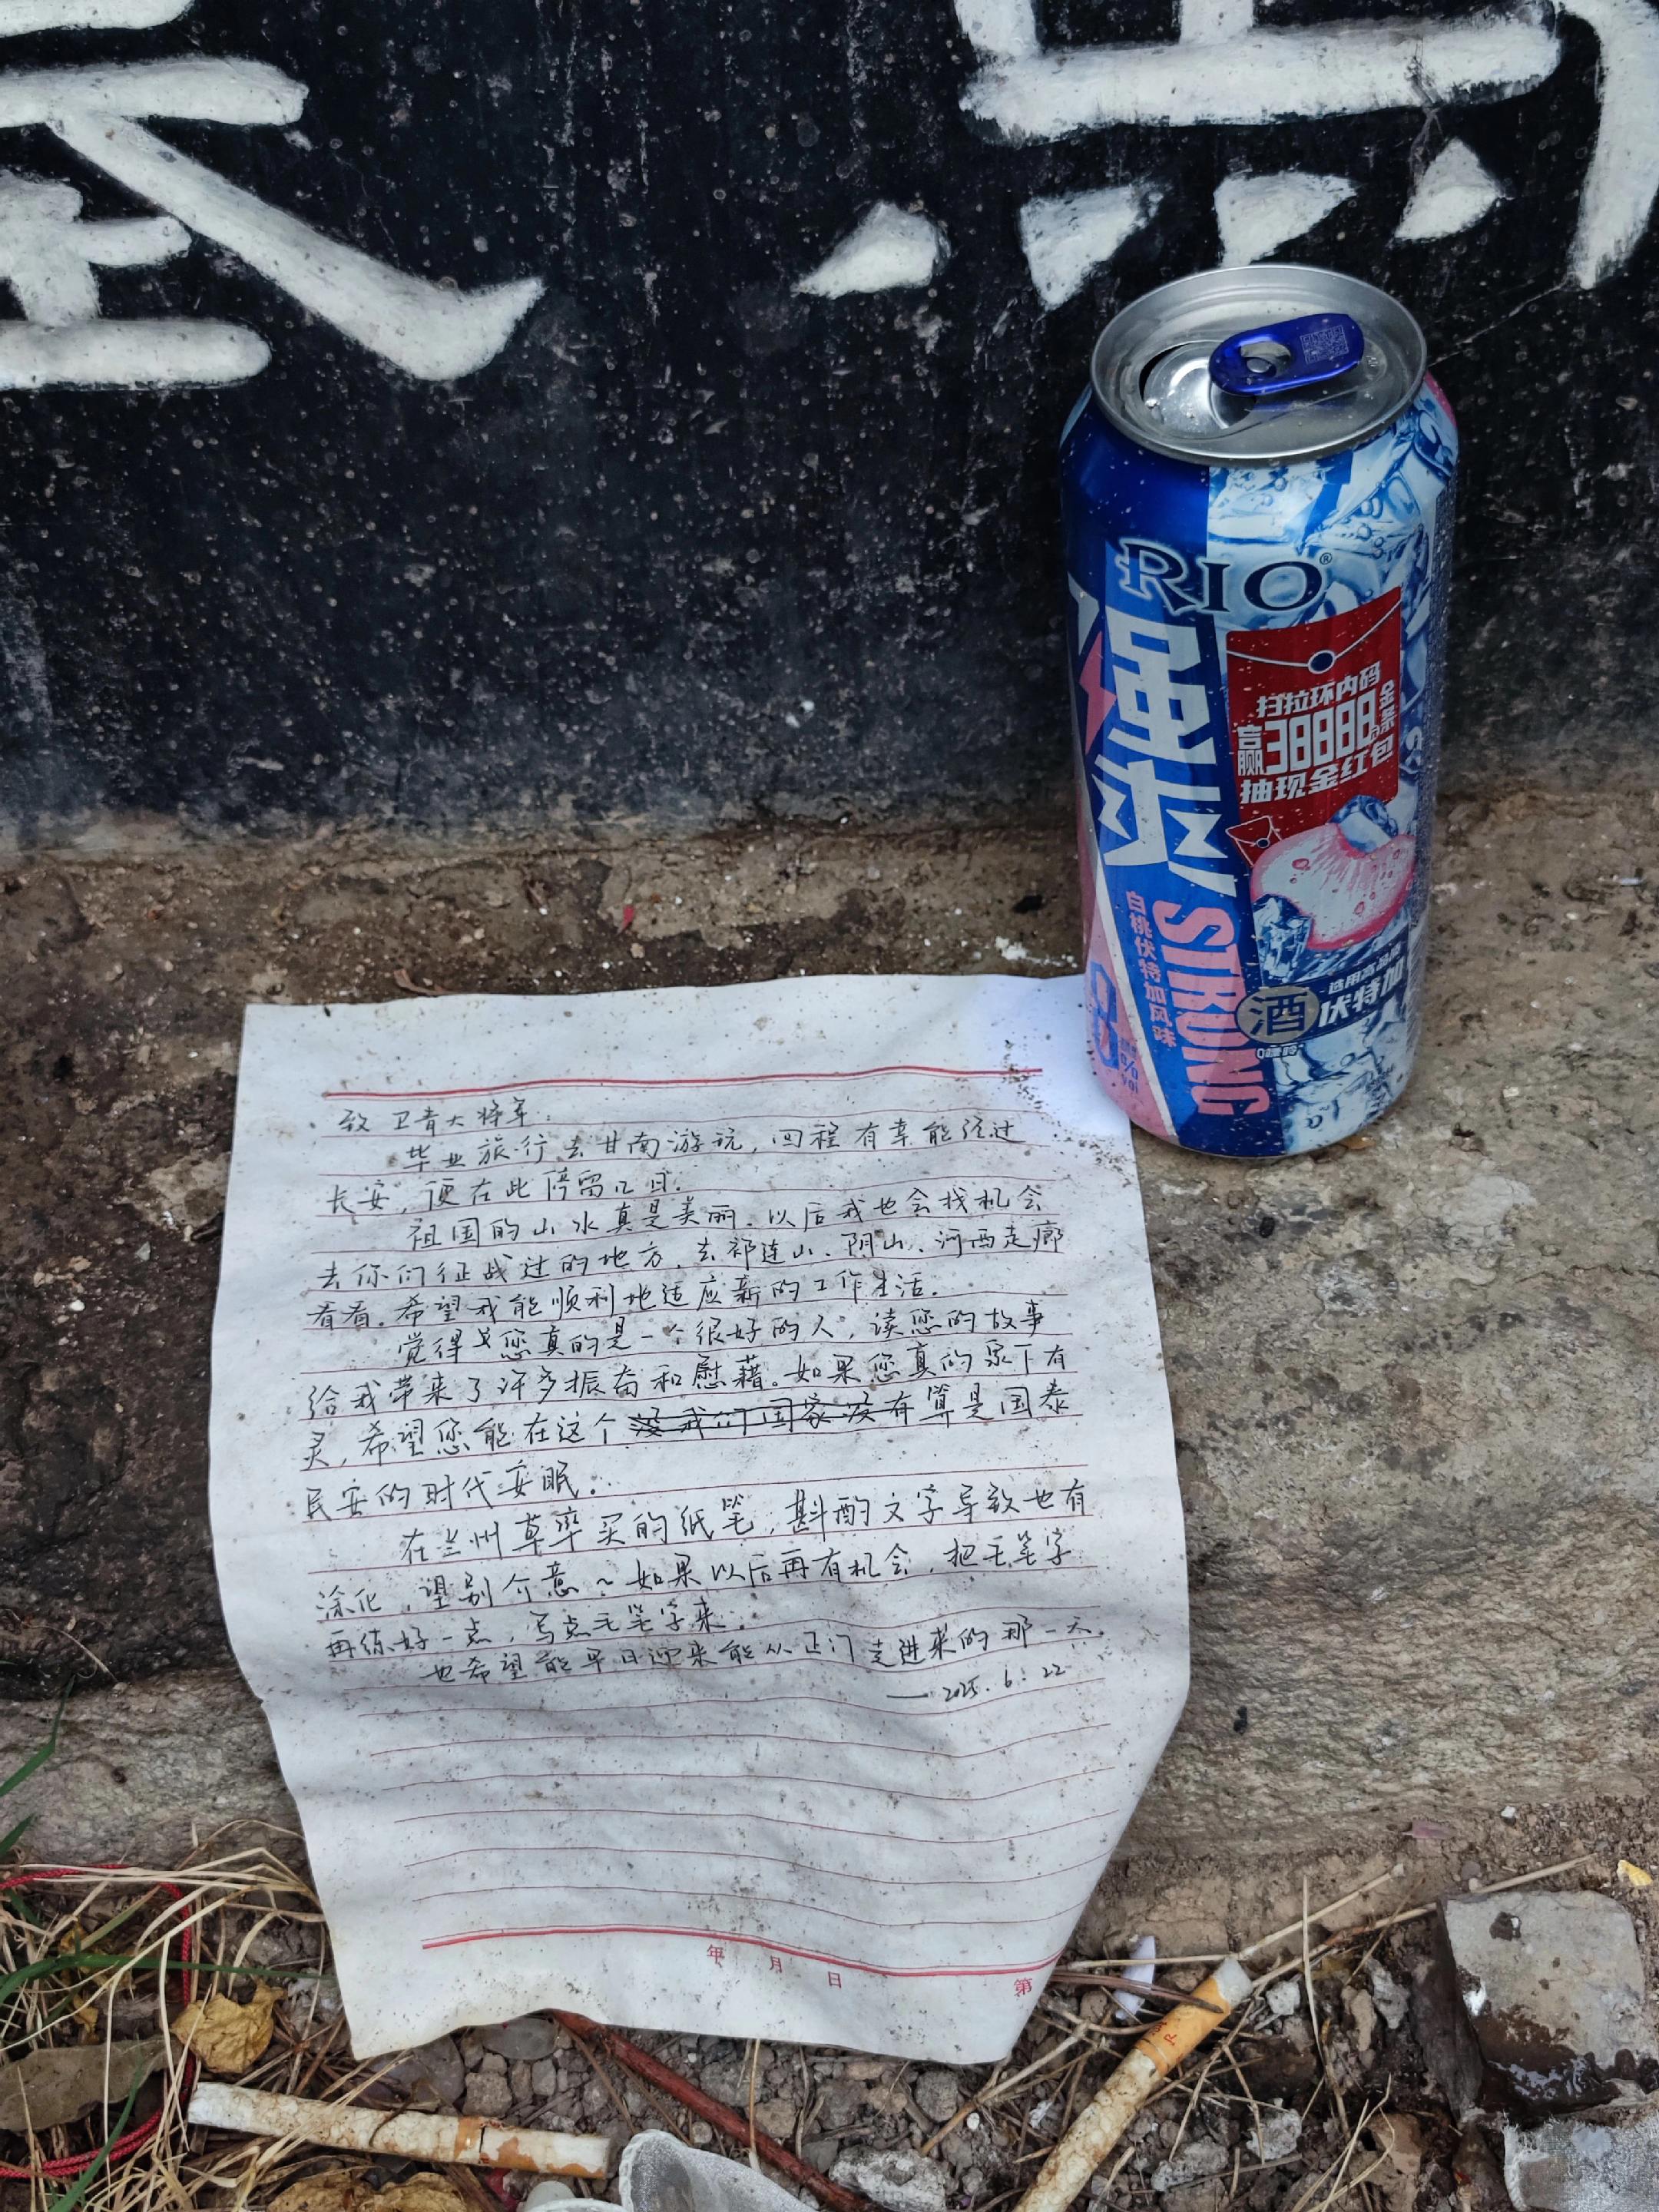 RIO
强爽
STRONG
白桃伏特加风味
扫拉环内码
赢38888元金条
抽现金红包
酒
伏特加
%vol
致卫青大将军:
毕业旅行去甘南游玩,回程有幸能经过
长安,便在此停留几日.
祖国的山水真是美丽.以后我也会找机会
去你们征战过的地方.去祁连山、阴山、河西走廊
看看.希望我能顺利地适应新的工作生活.
觉得您真的是一个很好的人,读您的故事
给我带来了许多振奋和慰藉。如果您真的泉下有
灵,希望您能在这个没我们国家没有算是国泰
民安的时代安眠。
在兰州草率买的纸笔,斟酌文字导致也有
涂化,望别介意~如果以后再有机会,把毛笔字
再练好一点,写点毛笔字来.
也希望能早日迎来能从正门走进来的那一天.
——2025.6.22
年 月 日 第